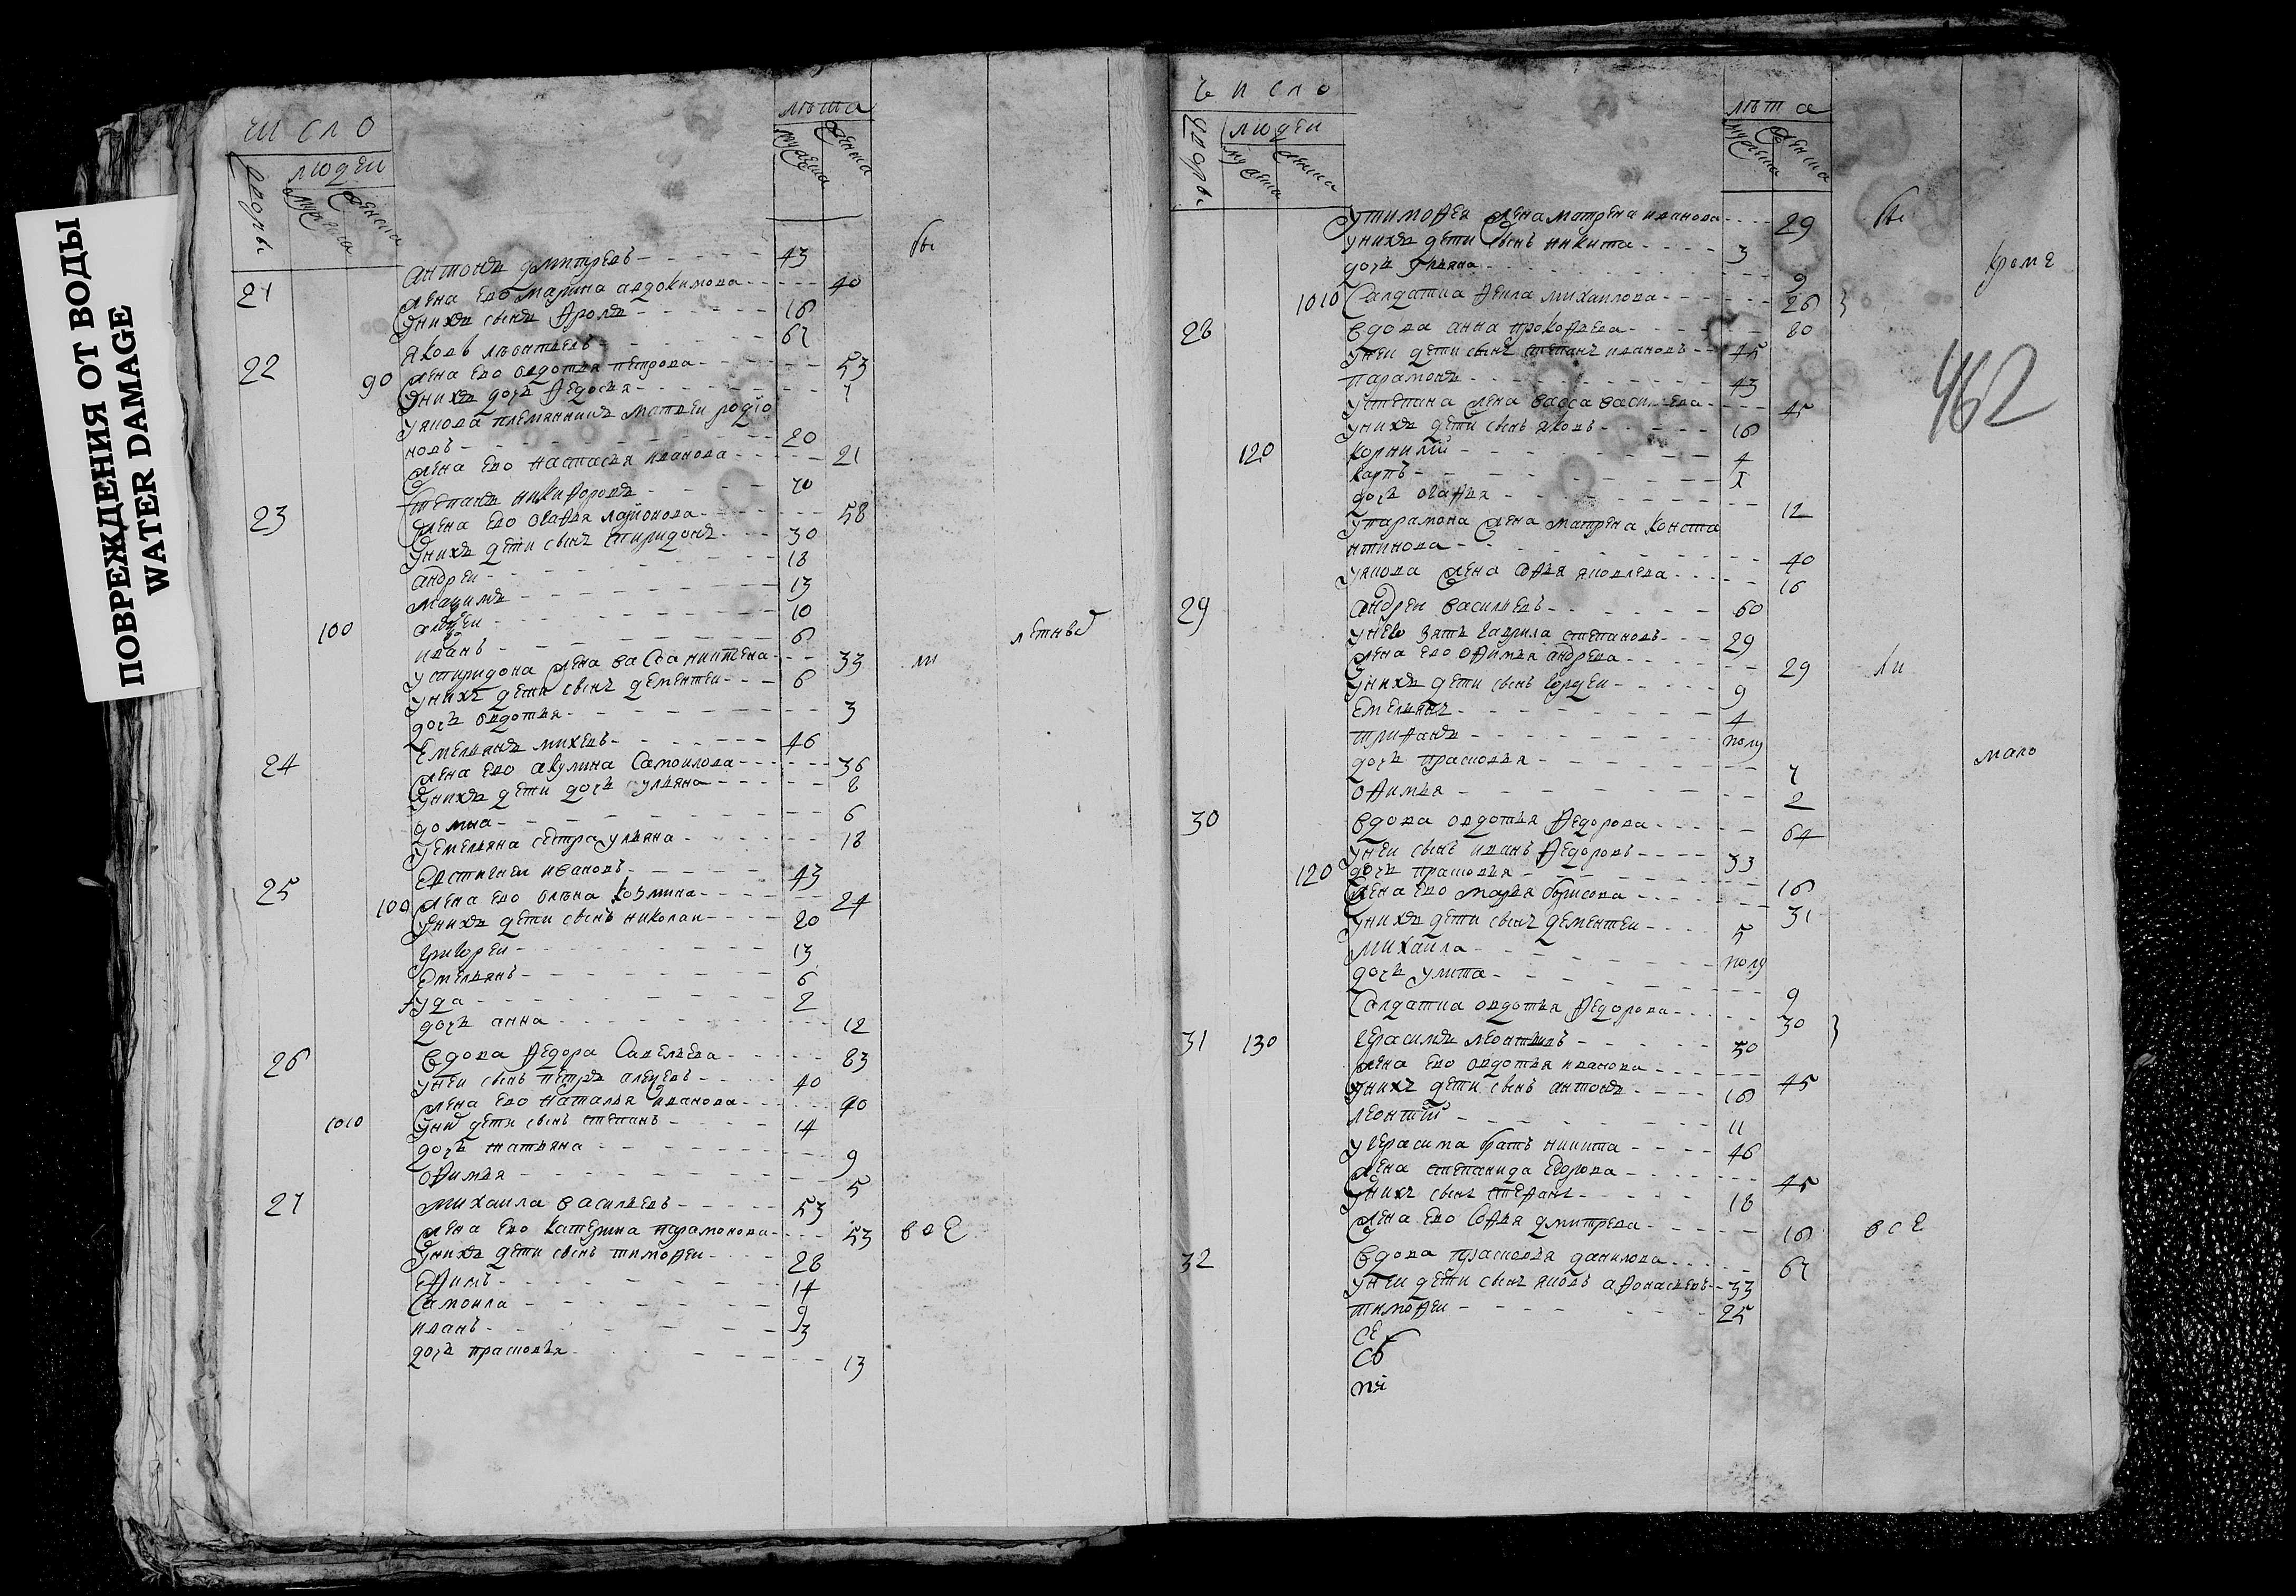 ПОВРЕЖДЕНИЯ ОТ ВОДЫ
WATER DAMAGE
число
дворы
людеи
мужеска
женска
лѣта
мужеска
женска
бы
антонъ дмитревъ 43
21 жена ево марина авдокимова 40
унихъ сынъ фролъ 16
22 яковъ лѣонтьевъ 67
90 жена ево овдотья петрова 53
унихъ дочь федосья 7
уякова племянникъ матвеи родіо
новъ 20
жена ево настасья иванова 21
23 степанъ никифоровъ 70
жена ево офафья ларионова 58
унихъ дети сынъ спиридонъ 30
андреи 18
максимъ 13
100 13 алексеи 10
иванъ 6
успиридона жена васса никитена 33 ли летныя
унихъ дети сынъ дементеи 6
дочь овдотья 3
24 Емельянъ михевъ 46
жена ево акулина самоилова 36
унихъ дети дочь ульяна 8
домна 6
уемельяна сестра ульяна 18
25 Евстигнеи ивановъ 43
100 жена ево олѣна козмина 24
унихъ дети сынъ николаи 20
григореи 13
Емельянъ 6
гуда 2
дочь анна 12
26 вдова федора савельева 83
унеи сынъ петръ алексевъ 40
жена ево наталья иванова 40
1010 уних дети сынъ степанъ 14
дочь татьяна 9
офимья 5
27 михаила васильевъ 53
жена ево катерина парамонова 53 все
унихъ дети сынъ тимофеи 28
Ефимъ 14
самоила 9
иванъ 3
дочь прасковья 13
число
дворы
людеи
мужеска
женска
лѣта
мужеска
женска
462
утимофея жена матрена иванова 29 бы
унихъ дети сынъ никита 3
дочь ульяна 9 кроме
1010 салдатка фекла михаилова 26
28 вдова анна прокофьева 80
унеи дети сынъ степанъ ивановъ 45
парамонъ 43
устепана жена васса васильева 45
унихъ дети сынъ яковъ 16
120 корнилиі 4
карпъ 1
дочь офафья 12
упарамона жена матрена конста
нтинова 40
уякова жена софья яковлева 16
29 андреи васильевъ 60
унево зять гаврила степановъ 29
жена ево офимья андрева 29 ли
унихъ дети сынъ гордеи 9
Емельянъ 4
трифанъ полу
дочь прасковья 7 мало
офимья 2
30 вдова овдотья федорова 64
унеи сынъ иванъ федоровъ 33
120 дочь прасковья 16
жена ево марья борисова 31
унихъ дети сынъ дементеи 5
михаила полу
дочь улита 9
салдатка овдотья федорова 30
31 130 герасимъ леонтьевъ 50
жена ево овдотья иванова 45
унихъ дети сынъ антонъ 16
леонтиі 11
угерасима братъ никита 46
жена степанида Егорова 45
унихъ сынъ стефанъ 18
жена ево софья дмитрева 16 все
32 вдова прасковья данилова 67
унеи дети сынъ яковъ афонасьевъ 33
тимофеи 25